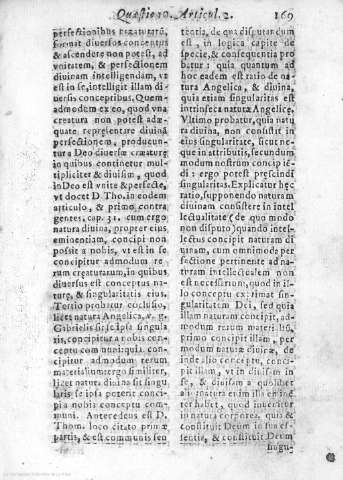 Quæstio 10. Articul. 2.
169
perfectionibus creaturarũ,
format diversos conceptus
& ascendere non potest, ad
vnitatem, & perfectionem
divinam intelligendam, vt
est in se, intelligit illam di
versis conceptibus. Quem-
admodum ex eo, quod vna
creatura non potest adæ-
quate repręsentare divinã
perfectionem, producun-
tur a Deo diversæ creaturę
in quibus continetur mul-
tipliciter & divisim, quod
in Deo est vnite & perfecte,
vt docet D. Tho. in eodem
articulo, & primo contra
gentes, cap. 31. cum ergo
natura divina, propter eius
eminentiam, concipi non
possit a nobis, vt est in se
concipitur admodum re-
rum creaturarum, in quibus
diversus est conceptus na-
turę, & singularitatis eius.
Tertio probatur coclusio,
licet natura Angelica, v. g.
Gabrielis sit se ipsa singula
ris, concipitur a nobis con-
ceptu communi quia con-
cipitur admodum rerum
materialium ergo similiter,
licet natura divina sit singula
ris se ipsa potest conci-
pi a nobis conceptu com-
muni. Antecedens est D.
Thom. loco citato primæ
partis, & est communis sen
tentia, de qua disputandum
est, in logica capite de
specie, & consequentia pro
batur: quia quantum ad
hoc eadem est ratio de na-
tura Angelica, & divina,
quia etiam singularitas est
intrinseca naturæ Angelicę.
Vltimo probatur, quia natu
ra divina, non consistit in
eius singularitate, sicut ne-
que in attributis, secundum
modum nostrum concipi ẽ
di: ergo potest prescindi
singularitas. Explicatur hęc
ratio, supponendo naturam
divinam consistere in intel
lectualitate (de quo modo
non disputo) quando intel-
lectus concipit naturam di
uinam, cum omnimoda per
fectione pertinente ad na-
turam intellectualem non
est necessarium, quod in il-
lo conceptu exprimat sin-
gularitatem Dei, sed quia
illam naturam concipit, ad-
modum rerum materialiũ,
primo concipit illam, per
modum naturæ divinæ, de
inde alio conceptu concipit
illam, vt in divisim in
se, & divisam a quolibet
alia natura etiam illa en in-
ter habet, quod invenitur
in natura corporea, quia &
constituit Deum in sua es-
sentia, & constituit Deum
singu-